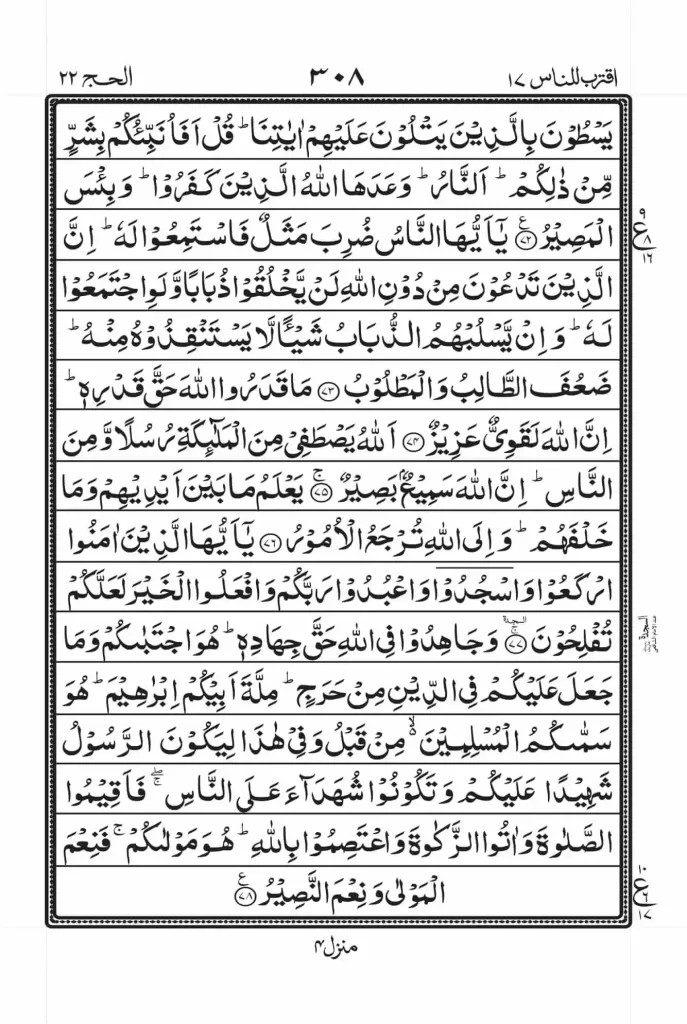 اقترب للناس ۱۷ ۳۰۸ الحج ۲۲
يَسْطُوْنَ بِالَّذِيْنَ يَتْلُوْنَ عَلَيْهِمْ اٰيٰتِنَا ؕ قُلْ اَفَاُنَبِّئُكُمْ بِشَرٍّ
مِّنْ ذٰلِكُمْ ؕ اَلنَّارُ ؕ وَعَدَهَا اللّٰهُ الَّذِيْنَ كَفَرُوْا ؕ وَبِئْسَ
الْمَصِيْرُ ۟ع ﴿۷۲﴾ يٰۤاَيُّهَا النَّاسُ ضُرِبَ مَثَلٌ فَاسْتَمِعُوْا لَهٗ ؕ اِنَّ
الَّذِيْنَ تَدْعُوْنَ مِنْ دُوْنِ اللّٰهِ لَنْ يَّخْلُقُوْا ذُبَابًا وَّلَوِ اجْتَمَعُوْا
لَهٗ ؕ وَاِنْ يَّسْلُبْهُمُ الذُّبَابُ شَيْـًٔا لَّا يَسْتَنْقِذُوْهُ مِنْهُ ؕ
ضَعُفَ الطَّالِبُ وَالْمَطْلُوْبُ ﴿۷۳﴾ مَا قَدَرُوا اللّٰهَ حَقَّ قَدْرِهٖ ؕ
اِنَّ اللّٰهَ لَقَوِىٌّ عَزِيْزٌ ﴿۷۴﴾ اَللّٰهُ يَصْطَفِىْ مِنَ الْمَلٰٓئِكَةِ رُسُلًا وَّمِنَ
النَّاسِ ؕ اِنَّ اللّٰهَ سَمِيْعٌۢ بَصِيْرٌ ۚ ﴿۷۵﴾ يَعْلَمُ مَا بَيْنَ اَيْدِيْهِمْ وَمَا
خَلْفَهُمْ ؕ وَاِلَى اللّٰهِ تُرْجَعُ الْاُمُوْرُ ﴿۷۶﴾ يٰۤاَيُّهَا الَّذِيْنَ اٰمَنُوا
ارْكَعُوْا وَاسْجُدُوْا وَاعْبُدُوْا رَبَّكُمْ وَافْعَلُوا الْخَيْرَ لَعَلَّكُمْ
تُفْلِحُوْنَ ۩ ﴿۷۷﴾ وَجَاهِدُوْا فِى اللّٰهِ حَقَّ جِهَادِهٖ ؕ هُوَ اجْتَبٰىكُمْ وَمَا
جَعَلَ عَلَيْكُمْ فِى الدِّيْنِ مِنْ حَرَجٍ ؕ مِلَّةَ اَبِيْكُمْ اِبْرٰهِيْمَ ؕ هُوَ
سَمّٰىكُمُ الْمُسْلِمِيْنَ ۙ مِنْ قَبْلُ وَفِىْ هٰذَا لِيَكُوْنَ الرَّسُوْلُ
شَهِيْدًا عَلَيْكُمْ وَتَكُوْنُوْا شُهَدَآءَ عَلَى النَّاسِ ۚ ۖ فَاَقِيْمُوا
الصَّلٰوةَ وَاٰتُوا الزَّكٰوةَ وَاعْتَصِمُوْا بِاللّٰهِ ؕ هُوَ مَوْلٰىكُمْ ۚ فَنِعْمَ
الْمَوْلٰى وَنِعْمَ النَّصِيْرُ ع ﴿۷۸﴾
منزل ۴